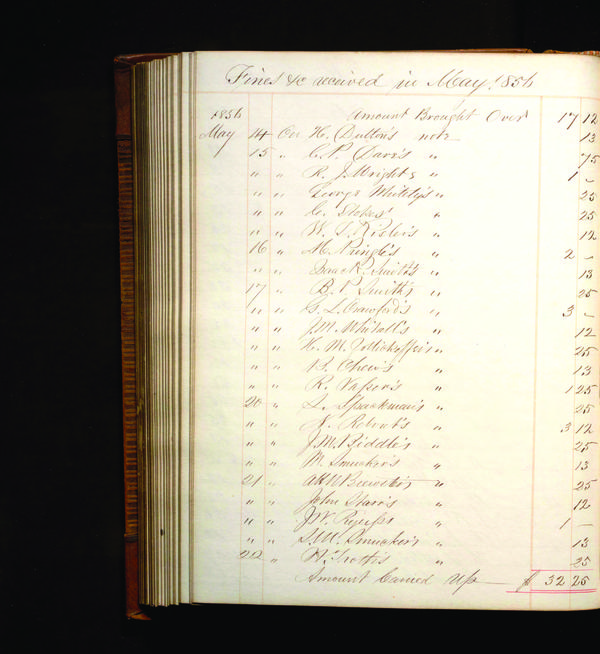 Fines &c received in May 1856
1856 Amount Brought Over 17 12
May 14 On H. Dutton's note 13
15 " C. P. " 75
" " R. J. Wright's " 1 –
" " George Whitely's " 25
" " C. Stokes' " 25
" " W. S. " 12
16 " M. Pringle's " 2 –
" " Isaac R. Smith's " 13
17 " B. P. Smith's " 25
" " S. L. Crawford's " 3 –
" " J. M. Whitall's " 12
" " H. M. Zollickoffer's " 25
" " B. Chew's " 13
" " R. Vassor's " 1 25
20 " L. Spackman's " 25
" " Robert's " 3 12
" " J. M. Biddle's " 25
" " M. Smucker's " 13
21 " " 25
" " John Starr's " 12
" " J. W. " 1 –
" " S. M. Smucker's " 13
22 " Trotter's " 25
Amount Carried Up – $ 32 25